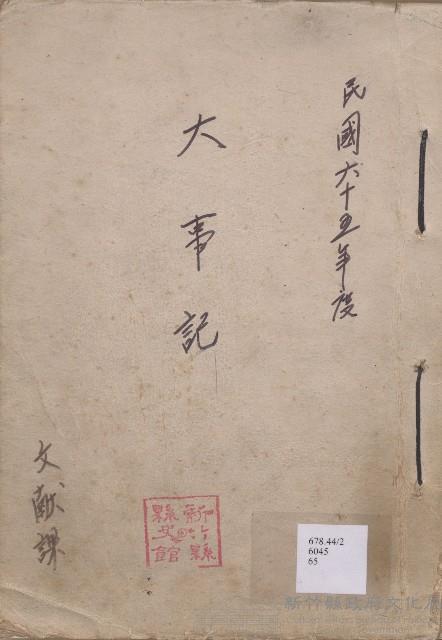 民國六十五年度
大事記
文献課
新竹縣
縣史館
678.44/2
6045
65
新竹縣政府文化局